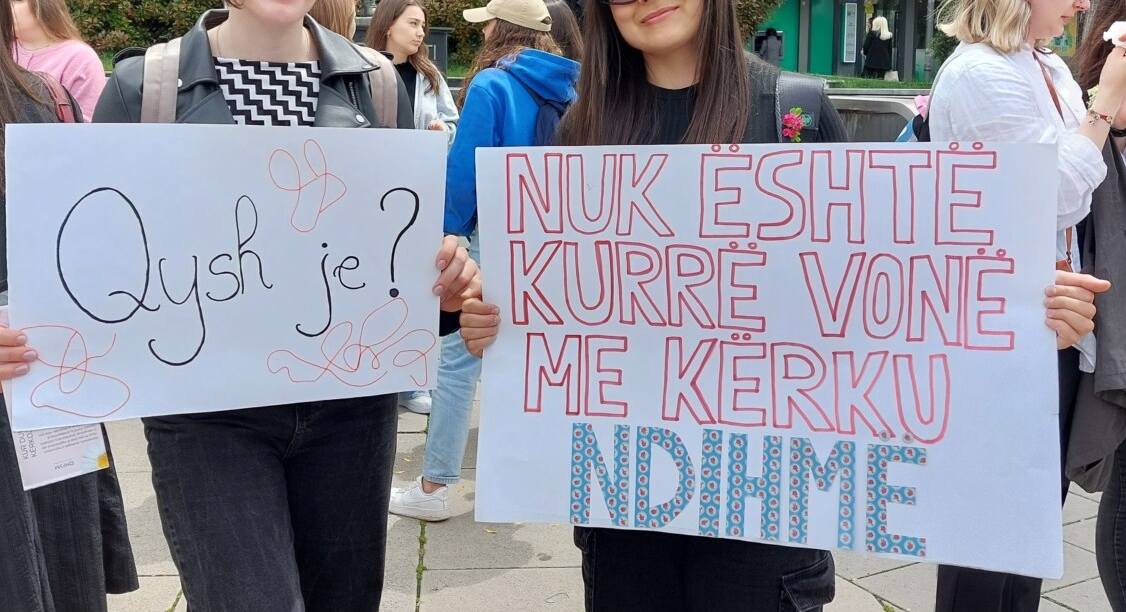 Qysh je?
NUK ËSHTË
KURRË VONË
ME KËRKU
NDIHMË
KUR DU
KËRKO